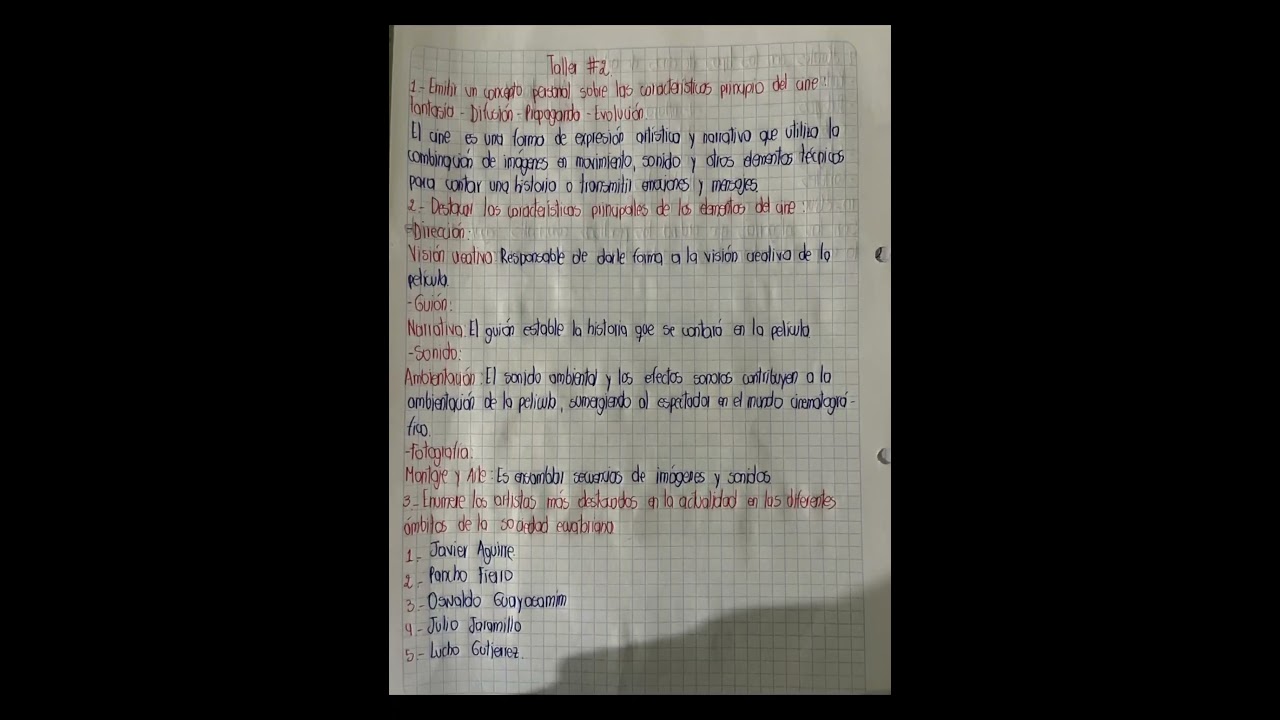 Taller #2.
1.- Emitir un concepto personal sobre las características principio del cine:
fantasía - Difusión - Propaganda - Evolución.
El cine es una forma de expresión artística y narrativa que utiliza la
combinación de imágenes en movimiento, sonido y otros elementos técnicos
para contar una historia o transmitir emociones y mensajes.
2.- Destacar las características principales de los elementos del cine:
-Dirección:
Visión creativa: Responsable de darle forma a la visión creativa de la
película.
-Guión:
Narrativa: El guión estable la historia que se contará en la película.
-Sonido:
Ambientación: El sonido ambiental y los efectos sonoros contribuyen a la
ambientación de la película, sumergiendo al espectador en el mundo cinematográ-
fico.
-Fotografía:
Montaje y Arte: Es ensamblar secuencias de imágenes y sonidos
3.- Enumere los artistas más destacados en la actualidad en las diferentes
ámbitos de la sociedad ecuatoriana
1.- Javier Aguirre
2.- Pancho Fierro
3.- Oswaldo Guayasamim
4.- Julio Jaramillo
5.- Lucho Gutierrez.